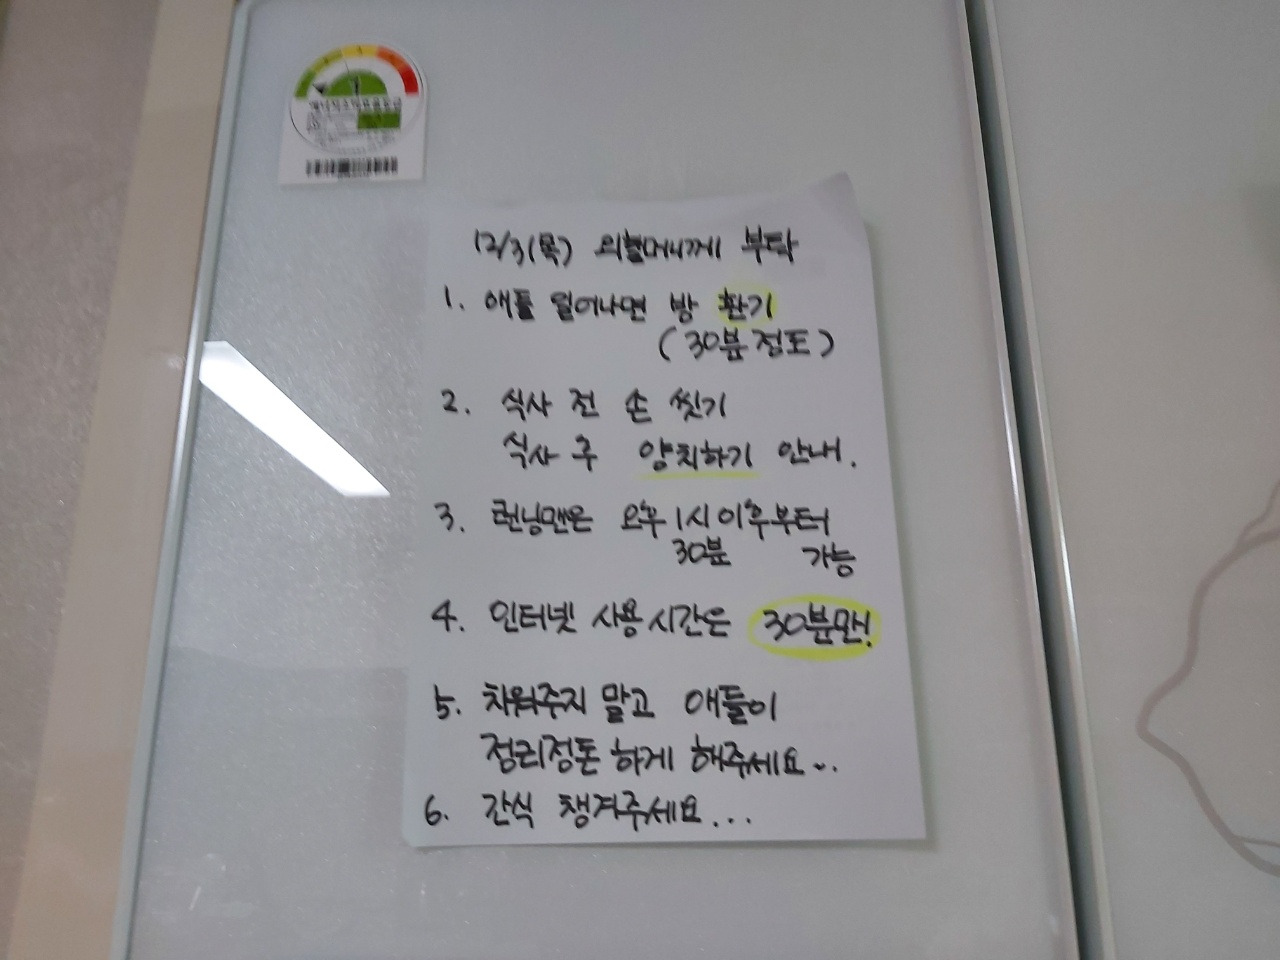 에너지소비효율등급
1
12/3(목) 외할머니께 부탁
1. 애들 일어나면 방 환기
(30분 정도)
2. 식사 전 손 씻기
식사 후 양치하기 안내.
3. 런닝맨은 오후 1시 이후부터
30분 가능
4. 인터넷 사용시간은 30분만!
5. 치워주지 말고 애들이
정리정돈 하게 해주세요~.
6. 간식 챙겨주세요...